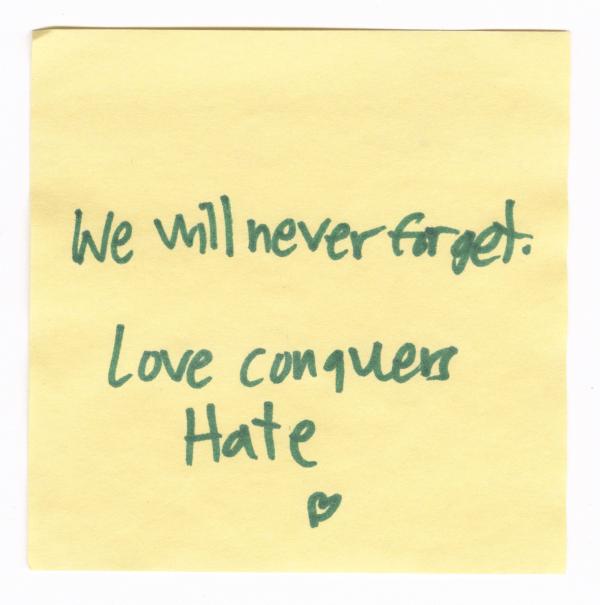 We will never forget.
Love conquers
Hate